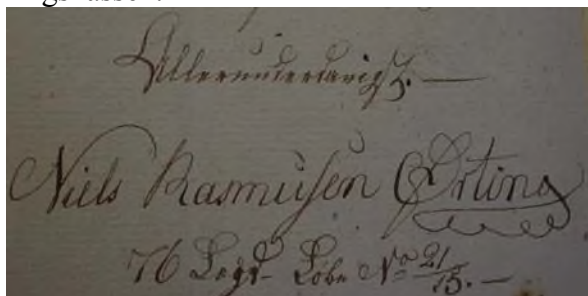 Allerunderdanigst.
Niels Rasmusen Ørting
76 Lægd- Løbe No 21/15.